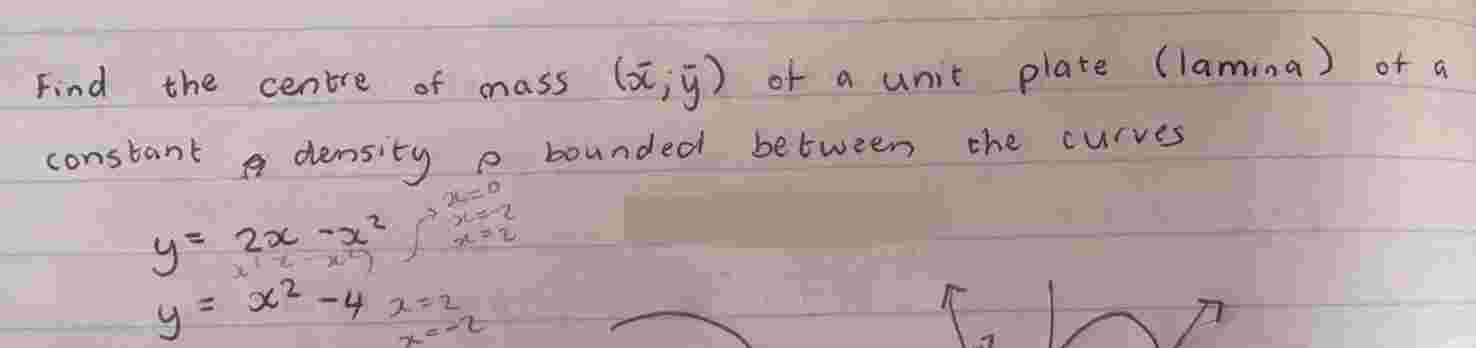 Find the centre of mass (x̄; ȳ) of a unit plate (lamina) of a
constant density ρ bounded between the curves
x=0
y = 2x - x² x=-2
x=2
y = x² - 4 x=2
x=-2